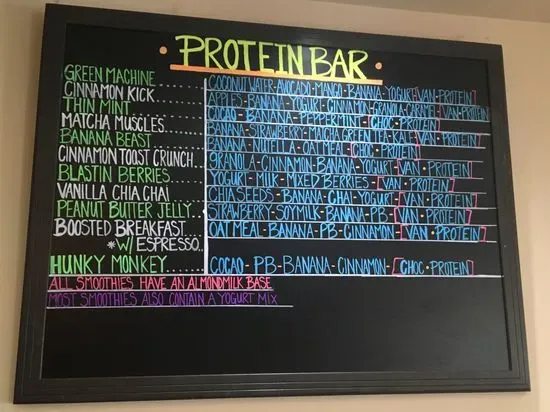 • PROTEIN BAR •
GREEN MACHINE COCONUT WATER-AVOCADO-MANGO-BANANA-YOGURT[VAN•PROTEIN]
CINNAMON KICK.... APPLES-BANANA-YOGURT-CINNAMON-GRANOLA-CARAMEL[VAN•PROTEIN
THIN MINT........ COCAO-BANANA-PEPPERMINT-[CHOC•PROTEIN]
MATCHA MUSCLES... BANANA-STRAWBERRY-MATCHA GREEN TEA-[VAN•PROTEIN]
BANANA BEAST..... BANANA-NUTELLA-OAT MEAL-[CHOC•PROTEIN]
CINNAMON TOOST CRUNCH.. GRANOLA-CINNAMON-BANANA-YOGURT-[VAN•PROTEIN]
BLASTIN BERRIES.... YOGURT-MILK-MIXED BERRIES-[VAN•PROTEIN]
VANILLA CHIA CHAI CHIA SEEDS-BANANA-CHAI-YOGURT-[VAN•PROTEIN]
PEANUT BUTTER JELLY.. STRAWBERRY-SOYMILK-BANANA-PB-[VAN•PROTEIN]
BOOSTED BREAKFAST... OATMEAL-BANANA-PB-CINNAMON-[VAN•PROTEIN]
*W/ESPRESSO..
HUNKY MONKEY...... COCAO-PB-BANANA-CINNAMON-[CHOC•PROTEIN]
ALL SMOOTHIES HAVE AN ALMONDMILK BASE
MOST SMOOTHIES ALSO CONTAIN A YOGURT MIX